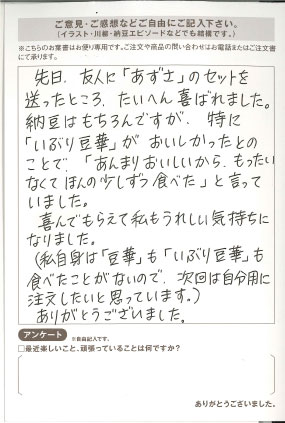 ご意見・ご感想などご自由にご記入下さい。
（イラスト・川柳・納豆エピソードなどでも結構です。）
※こちらのお葉書はお便り専用です。ご注文や商品の問い合わせはお電話またはご注文書
にて承ります。
先日、友人に「あずさ」のセットを
送ったところ、たいへん喜ばれました。
納豆はもちろんですが、特に
「いぶり豆華」が おいしかったとの
ことで、「あんまりおいしいから、もったい
なくてほんの少しずつ食べた」と言って
いました。
喜んでもらえて私もうれしい気持ちに
なりました。
（私自身は「豆華」も「いぶり豆華」も
食べたことがないので、次回は自分用に
注文したいと思っています。）
ありがとうございました。
アンケート ※自由記入です。
□最近楽しいこと、頑張っていることは何ですか？
ありがとうございました。